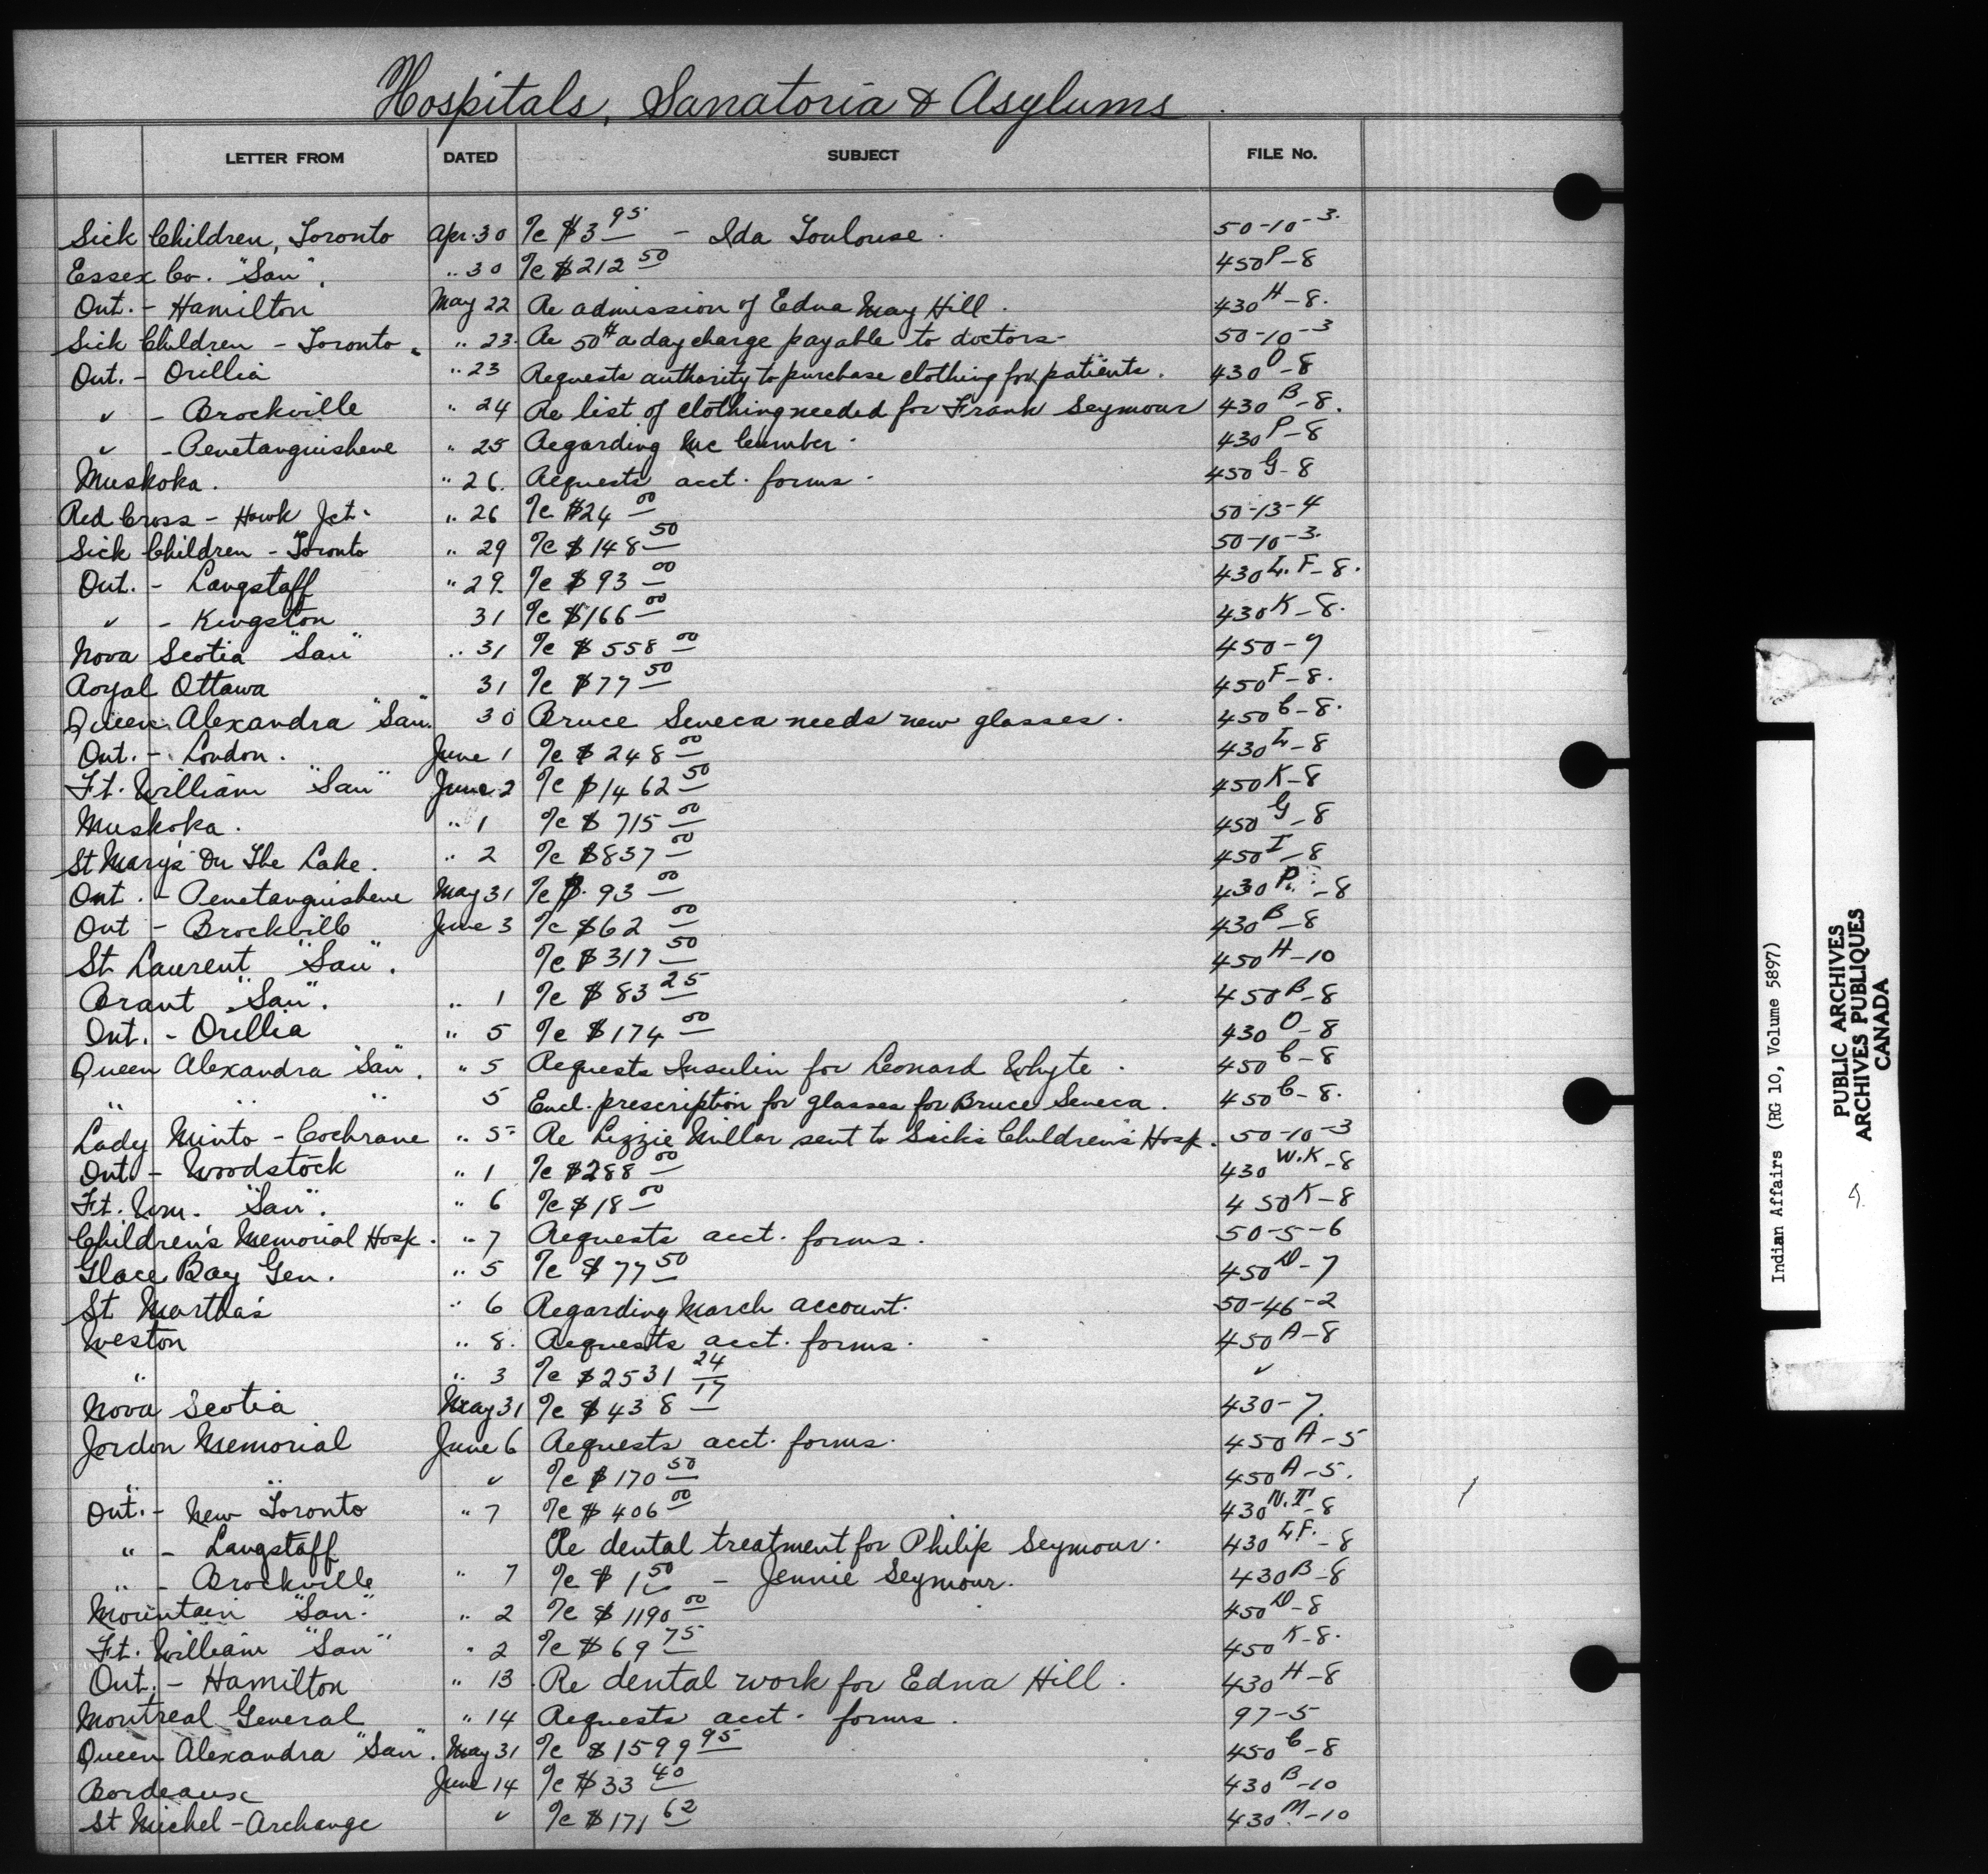 Hospitals, Sanatoria & Asylums
LETTER FROM DATED SUBJECT FILE No.
Sick Children, Toronto Apr. 30 %c $3 95 - Ida Toulouse. 50-10-3.
Essex Co. "San". .. 30 %c $212 50 450 P-8
Ont. - Hamilton May 22 Re admission of Edna May Hill. 430 H-8.
Sick Children - Toronto. .. 23. Re 50¢ a day charge payable to doctors- 50-10-3
Ont. - Orillia .. 23 Requests authority to purchase clothing for patients. 430 O-8
" - Brockville .. 24 Re list of clothing needed for Frank Seymour 430 B-8.
" - Penetanguishene .. 25 Regarding Mc Cumber. 430 P-8
Muskoka. .. 26. Requests acct. forms. 450 G-8
Red Cross - Hawk Jct. .. 26 %c $24 00 50-13-4
Sick Children - Toronto .. 29 %c $148 50 50-10-3.
Ont. - Langstaff .. 29. %c $93 00 430 L.F-8.
" - Kingston 31 %c $166 00 430 K-8.
Nova Scotia "San" .. 31 %c $558 00 450-7
Royal Ottawa 31 %c $77 50 450 F-8.
Queen Alexandra "San". 30 Bruce Seneca needs new glasses. 450 C-8.
Ont. - London. June 1 %c $248 00 430 L-8
Ft. William "San" June 2 %c $1462 50 450 K-8
Muskoka. .. 1 %c $715 00 450 G-8
St Mary's On The Lake. .. 2 %c $837 00 450 I-8
Ont. - Penetanguishene May 31 %c $93 00 430 P.-8
Ont - Brockville June 3 %c $62 00 430 B-8
St Laurent "San". %c $317 50 450 H-10
Brant "San". .. 1 %c $83 25 450 B-8
Ont. - Orillia .. 5 %c $174 00 430 O-8
Queen Alexandra "San". .. 5 Requests Insulin for Leonard Whyte. 450 C-8
" " " 5 Encl. prescription for glasses for Bruce Seneca. 450 C-8.
Lady Minto - Cochrane .. 5 Re Lizzie Millar sent to Sick Children's Hosp. 50-10-3
Ont. - Woodstock .. 1 %c $288 00 430 W.K-8
Ft. Wm. "San". .. 6 %c $18 00 450 K-8
Children's Memorial Hosp. .. 7 Requests acct. forms. 50-5-6
Glace Bay Gen. .. 5 %c $77 50 450 D-7
St Martha's .. 6 Regarding March account. 50-46-2
Weston .. 8. Requests acct. forms. 450 A-8
" .. 3 %c $2531 24 "
Nova Scotia May 31 %c $438 17 430-7.
Jordon Memorial June 6 Requests acct. forms. 450 A-5
" " %c $170 50 450 A-5.
Ont. - New Toronto .. 7 %c $406 00 430 N.T-8
" - Langstaff Re dental treatment for Philip Seymour. 430 L.F.-8
" - Brockville .. 7 %c $1 50 - Jennie Seymour. 430 B-8
Mountain "San". .. 2 %c $1190 00 450 D-8
Ft. William "San" .. 2 %c $69 75 450 K-8.
Ont. - Hamilton .. 13 Re dental work for Edna Hill. 430 H-8
Montreal General .. 14 Requests acct. forms. 97-5
Queen Alexandra "San". May 31 %c $1599 95 450 C-8
Bordeaux June 14 %c $33 40 430 B-10
St Michel-Archange " %c $171 62 430 M-10
Indian Affairs (RG 10, Volume 5897)
PUBLIC ARCHIVES
ARCHIVES PUBLIQUES
CANADA